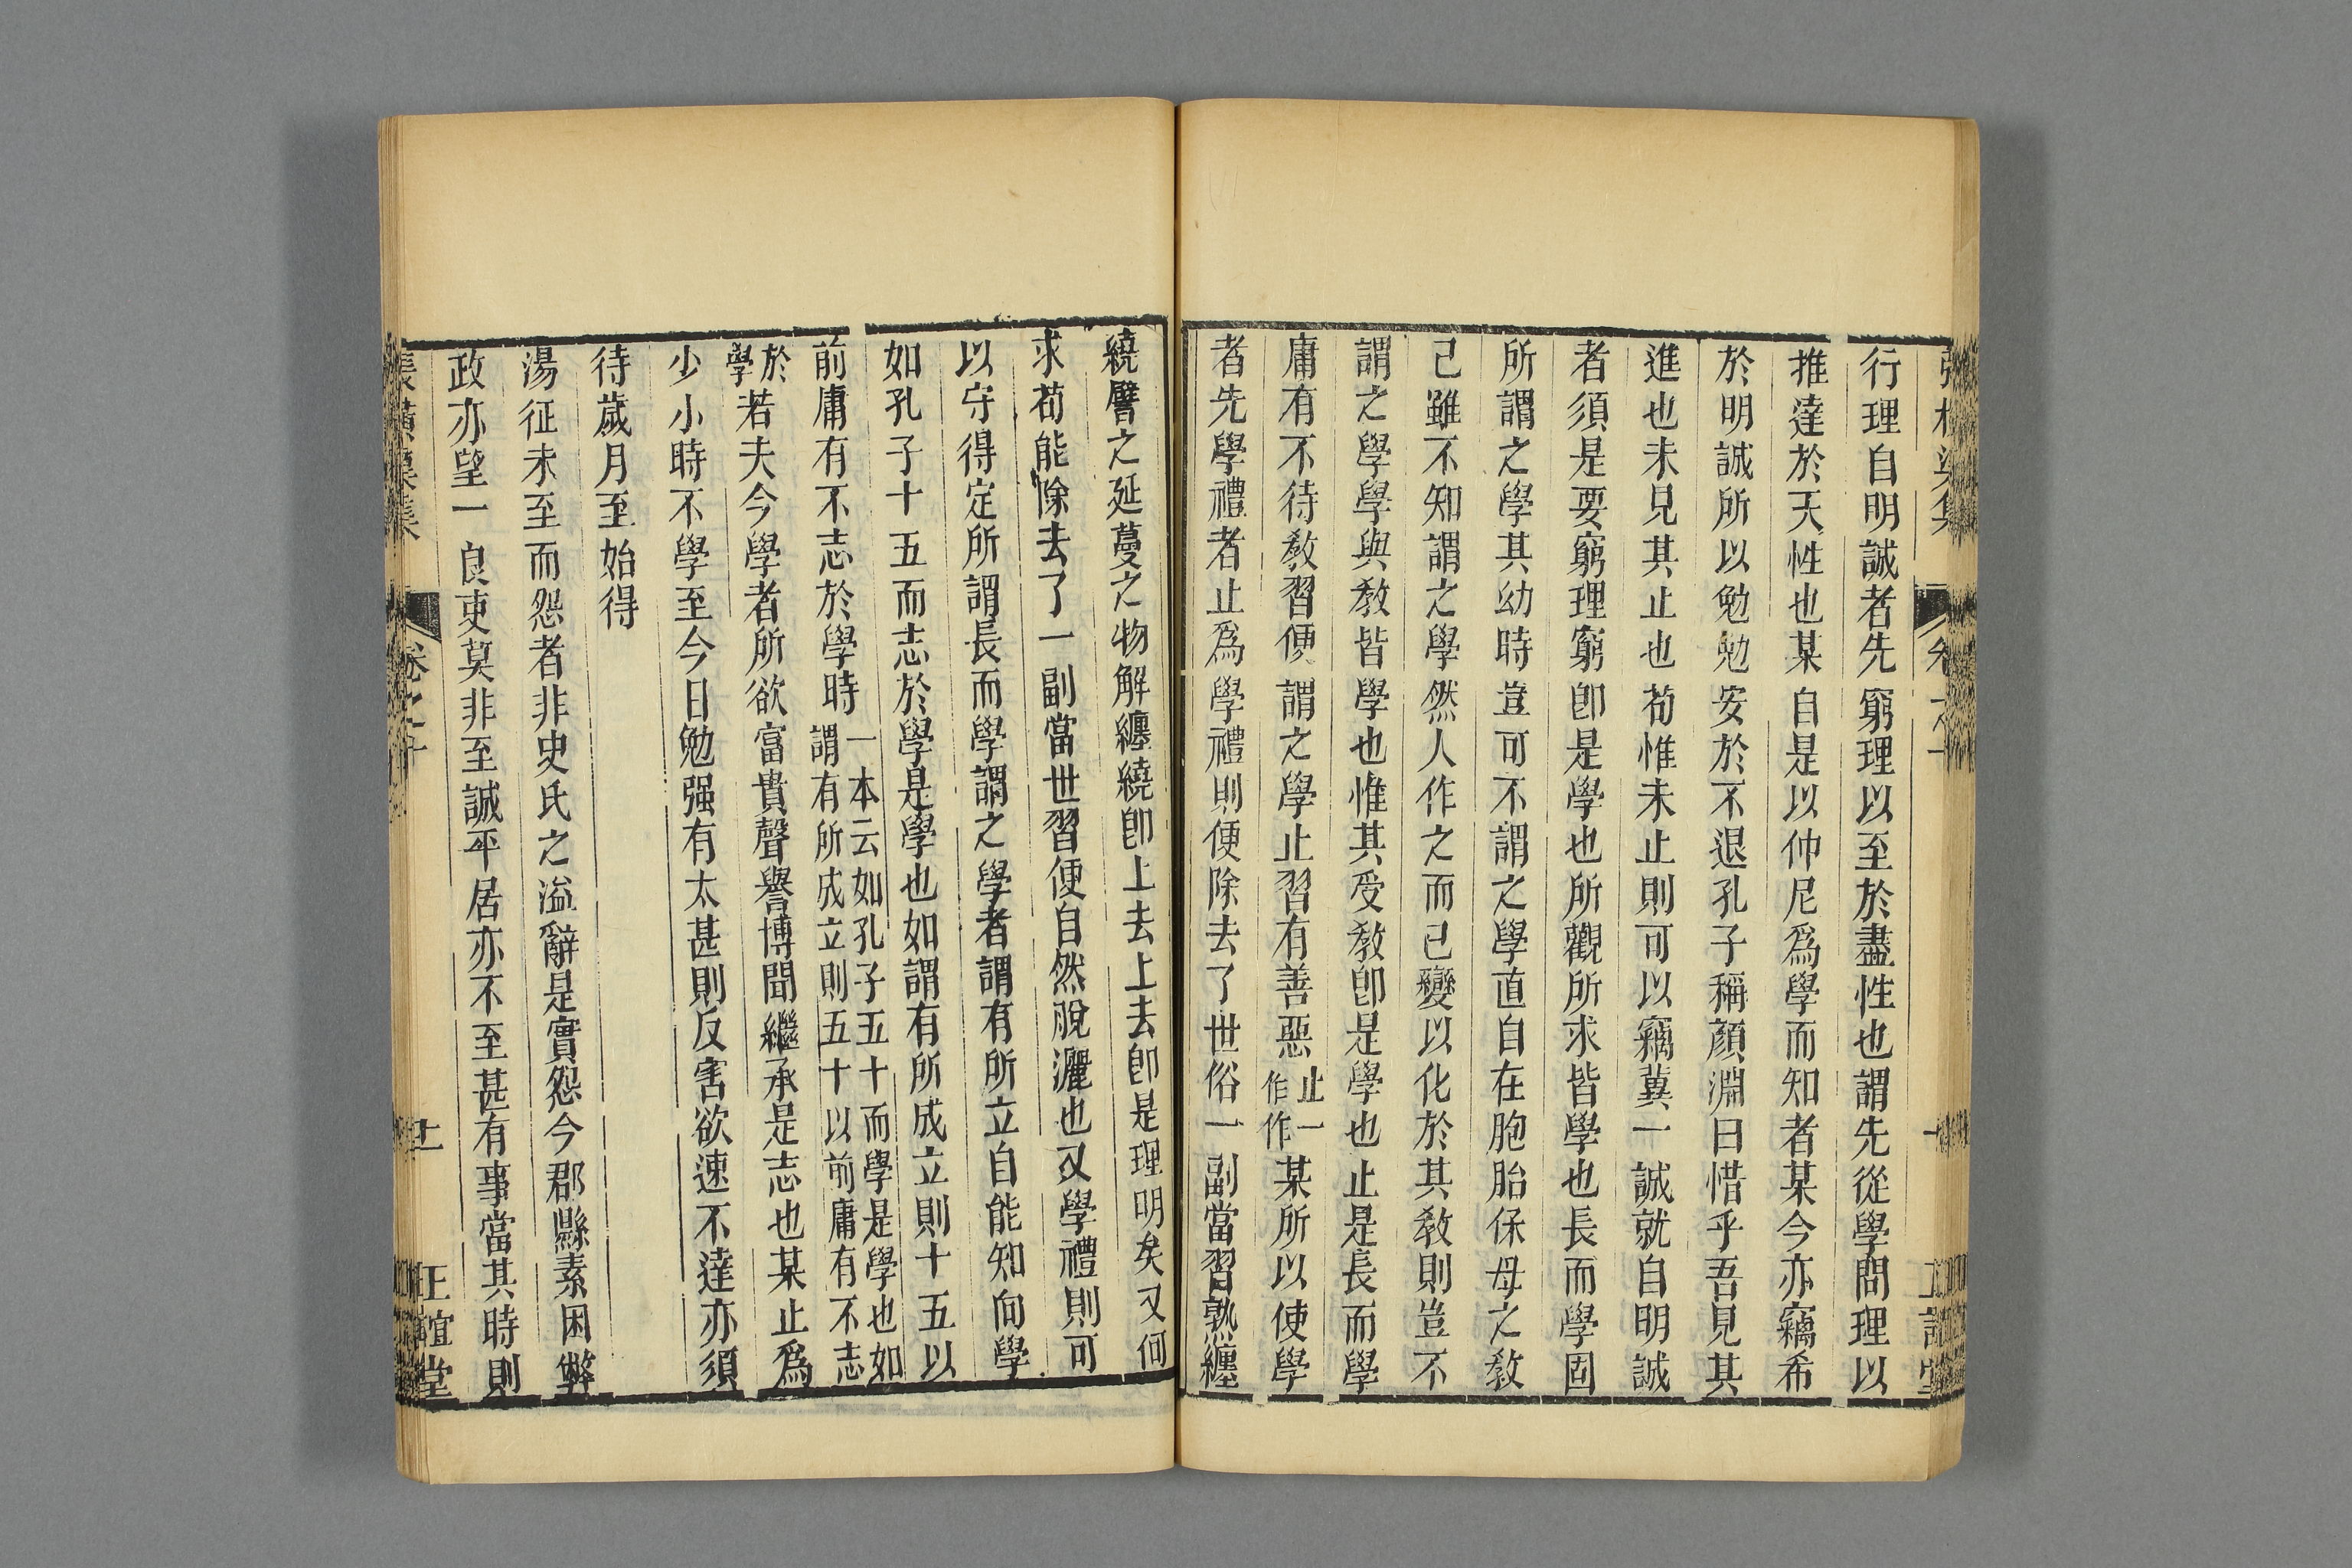 行理自明誠者先窮理以至於盡性也謂先從學問理以
推達於天性也某自是以仲尼爲學而知者某今亦竊希
於明誠所以勉勉安於不退孔子稱顏淵曰惜乎吾見其
進也未見其止也苟惟未止則可以竊冀一誠就自明誠
者須是要窮理窮卽是學也所觀所求皆學也長而學固
所謂之學其幼時豈可不謂之學直自在胞胎保母之教
己雖不知謂之學然人作之而已變以化於其教則豈不
謂之學學與教皆學也惟其受教卽是學也止是長而學
庸有不待教習便謂之學止習有善惡止一作作某所以使學
者先學禮者止爲學禮則便除去了世俗一副當習熟纏
繞譬之延蔓之物解纏繞卽上去上去卽是理明矣又何
求苟能除去了一副當世習便自然脫灑也又學禮則可
以守得定所謂長而學謂之學者謂有所立自能知向學
如孔子十五而志於學是學也如謂有所成立則十五以
前庸有不志於學時一本云如孔子五十而學是學也如謂有所成立則五十以前庸有不志
於學若夫今學者所欲富貴聲譽博聞繼承是志也某止爲
少小時不學至今日勉强有太甚則反害欲速不達亦須
待歲月至始得
湯征未至而怨者非史氏之溢辭是實怨今郡縣素困弊
政亦望一良吏莫非至誠平居亦不至甚有事當其時則
張橫渠集
卷之十
正誼堂